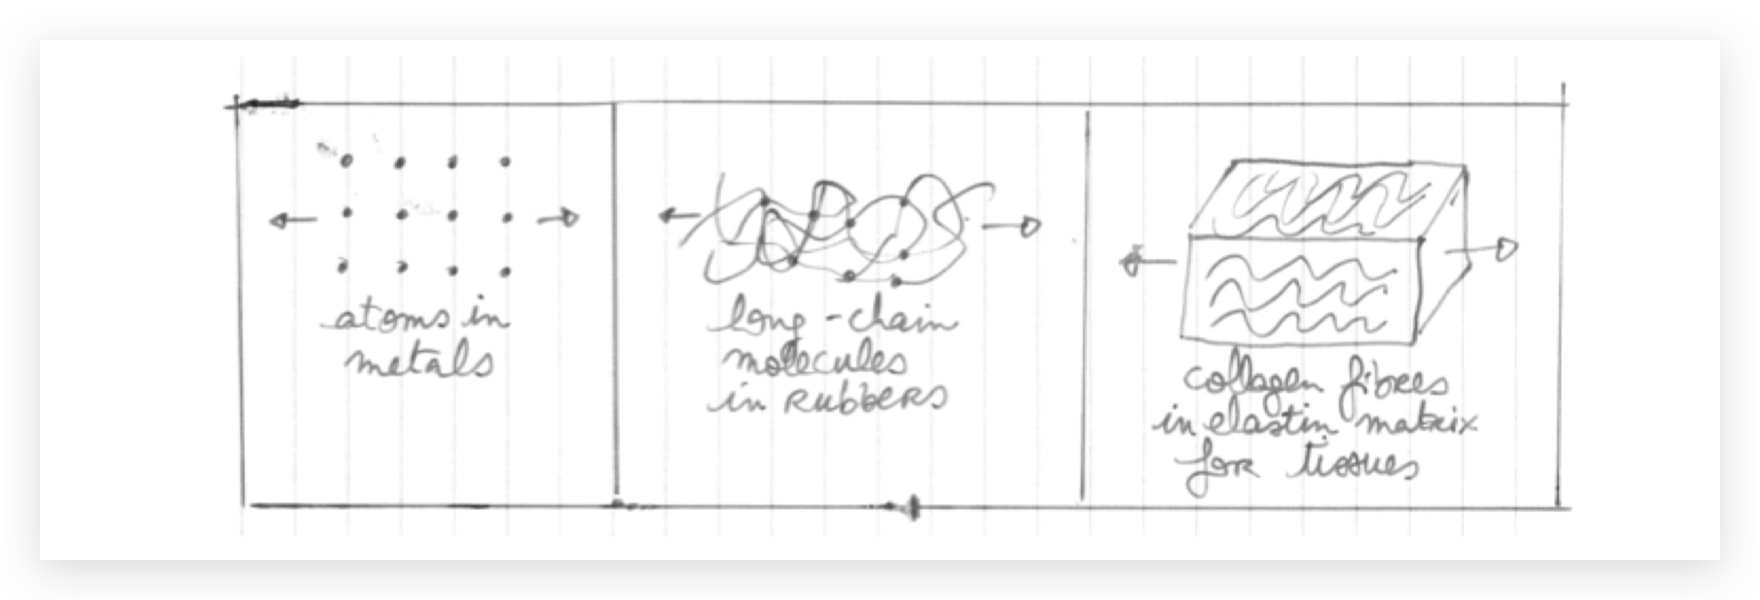 atoms in
metals
long-chain
molecules
in RubbeRs
collagen fibres
in elastin matrix
for tissues